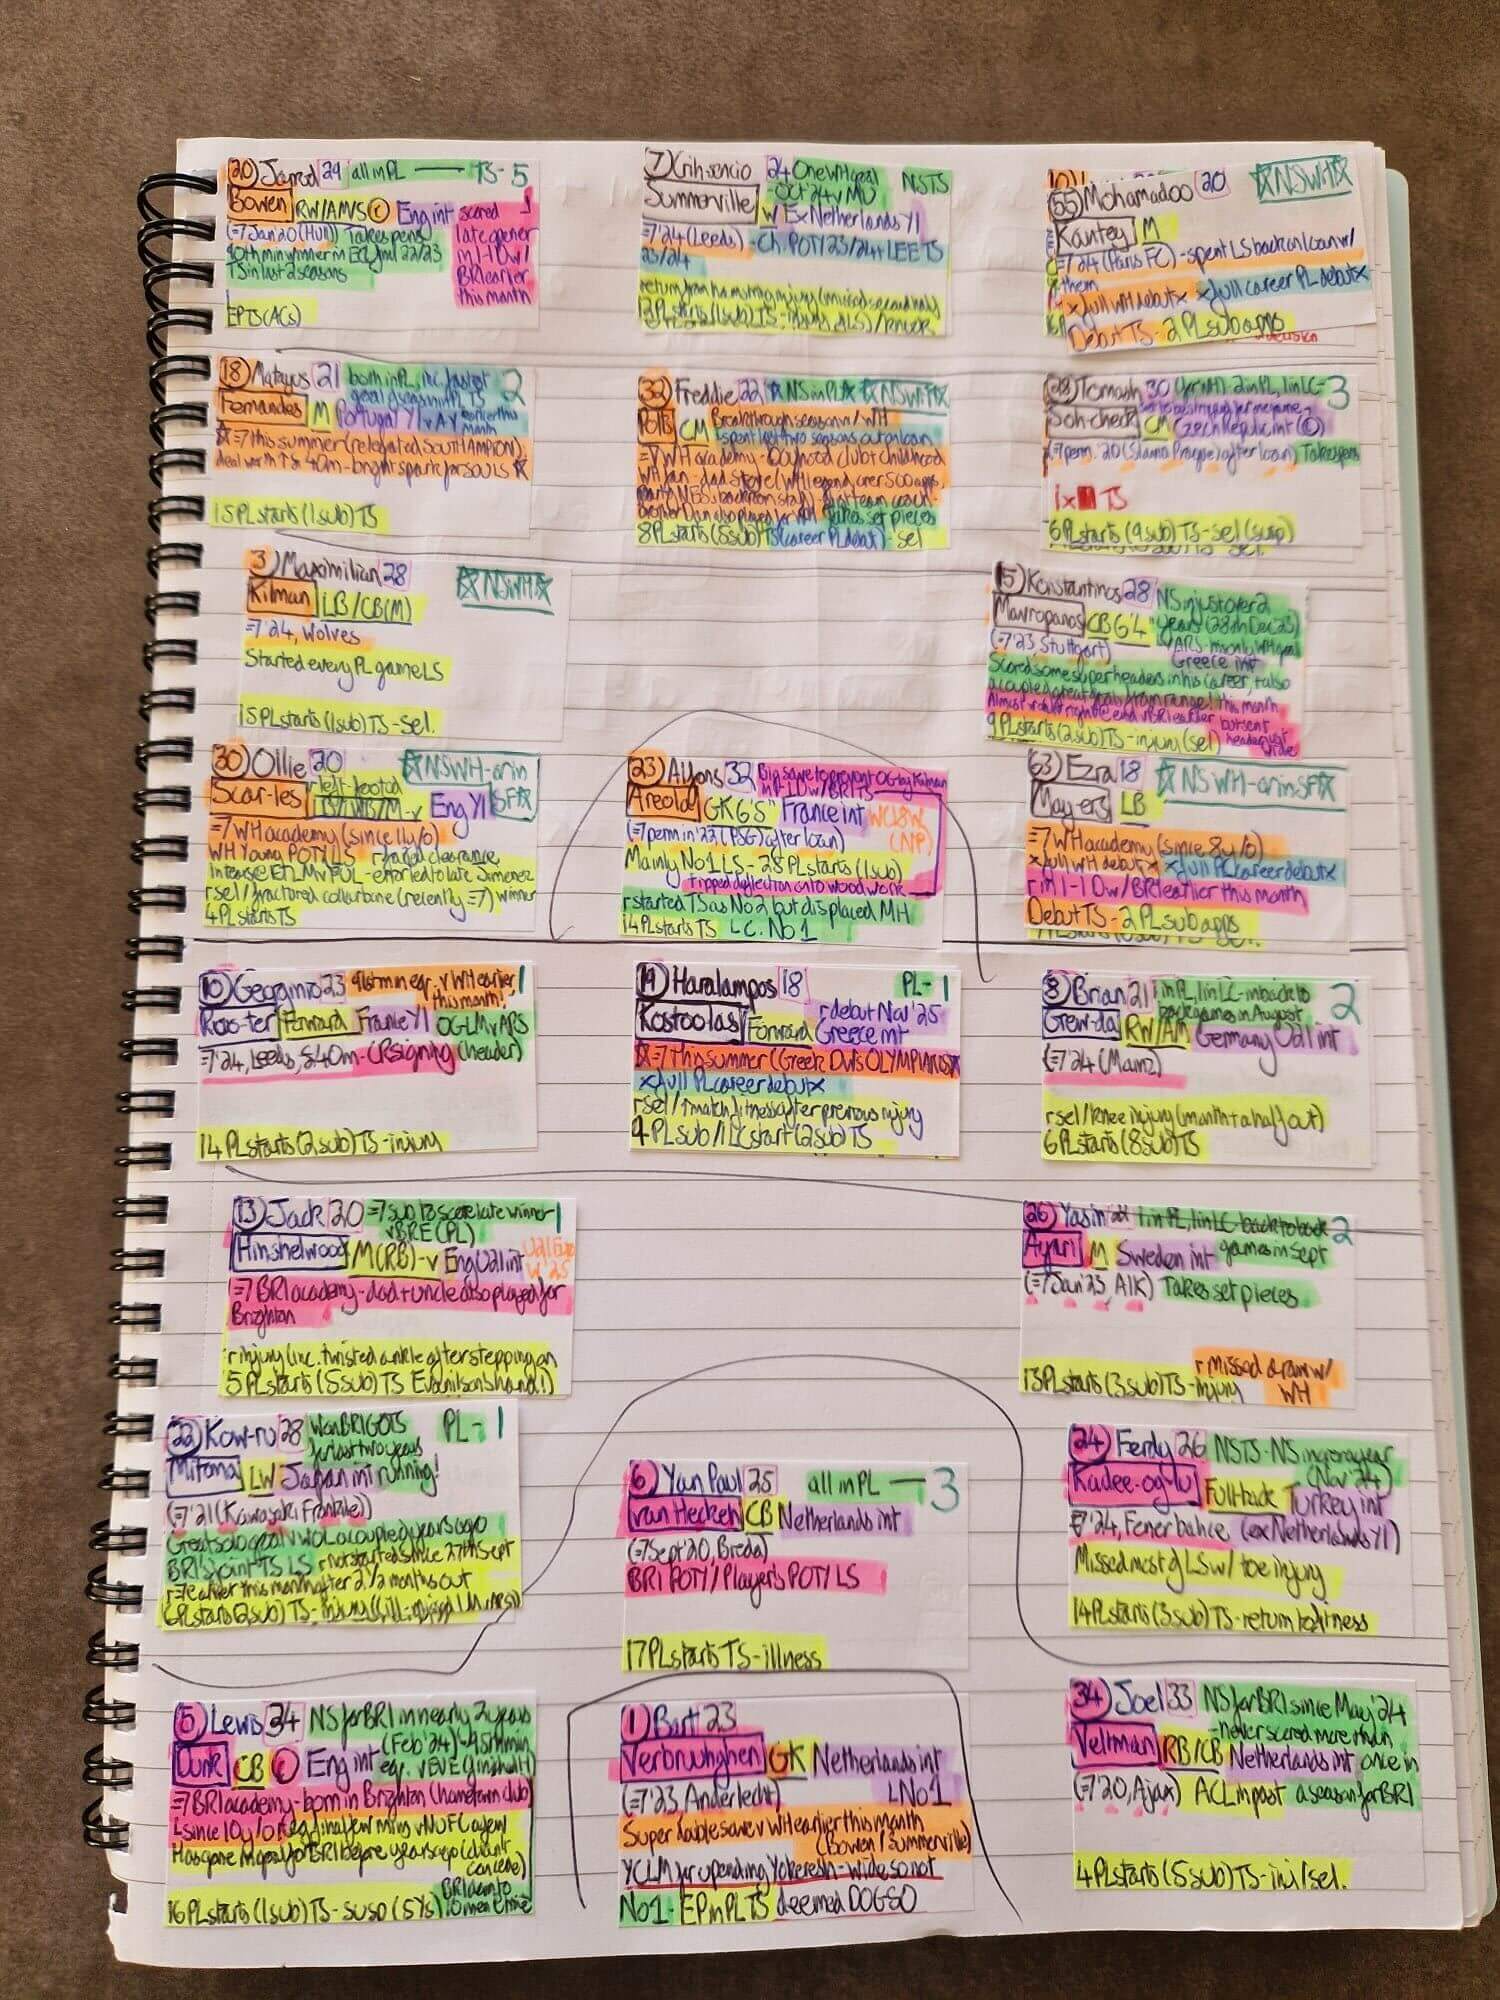 20 Jarrod 29 all in PL — TS - 5
Bowen RW/AM/S C Eng int scored
(=7 Jan 20 (Hull)) Takes pens late opener
90th min winner in ECL final 22/23 in 1-1 D w/
TS in last 2 seasons BRI earlier
this month
EPTS (ACs)
7 Crih-sencio 24 One WH goal NSTS
Summerville - Oct '24 v MU
W Ex Netherlands YI
(=7 '24 (Leeds) - Ch. POTY 23/24 + LEE TS
23/24
return from hamstring injury
12 PL starts (1 sub) TS - injury
55 Mohamadoo 20 ☆NSWH☆
Kantey M
=7 '24 (Paris FC) - spent LS back on loan w/
them
x full WH debut x x full career PL debut x
Debut TS - 2 PL sub apps
18 Mateyus 21 both in PL, inc. fastest 2
Fernandes goal of season in PL TS
M Portugal YI v AV earlier this
month
☆ =7 this summer (relegated SOUTHAMPTON)
deal worth TS 40m - bright spark for souls ☆
15 PL starts (1 sub) TS
32 Freddie 22 ☆NS in PL☆ ☆NSWH☆
Potts CM Breakthrough season w/ WH
spent last two seasons out on loan
=7 WH academy - boyhood club + childhood
WH fan - dad Steve (WH legend, over 500 apps,
takes set pieces
8 PL starts (8 sub) TS (career PL debut) - sel
28 Tomash 30 2 in PL, 1 in LC = 3
Soh-check CM Czech Republic int C
(=7 perm. 20 (Slavia Prague) after loan) Takes pens
1 x TS
6 PL starts (9 sub) TS - sel (susp)
3 Maximilian 28 ☆NSWH☆
Kilman LB/CB(M)
=7 '24, Wolves
Started every PL game LS
15 PL starts (1 sub) TS - sel.
15 Konstantinos 28 NS in just over 2
Mavropanos CB 6'4" years (28th Dec 23)
(=7 '23, Stuttgart) v ARS - only WH goal
Greece int
Scored some super headers in his career, + also
a couple of great goals from range! this month
Almost v BRI earlier but sent
9 PL starts (2 sub) TS - injury (sel) header just
wide
30 Ollie 20 ☆NSWH - or in
Scar-les left-footed SF☆
LB/WB/M - v Eng YI
=7 WH academy (since 11 y/o)
WH Young POTY LS r faced clearance
r sel / fractured collarbone (recently =7) winner
4 PL starts TS
23 Alfons 32 Big save to prevent OG by Kilman
in 1-1 D w/ BRI TS
Areola GK 6'5" France int WC18W
(=7 perm in '23 (PSG) after loan) (NP)
Mainly No1 LS - 28 PL starts (1 sub)
tipped deflection onto woodwork
r started TS as No2 but displaced MH
14 PL starts TS LC. No 1
63 Ezra 18 ☆NSWH - or in SF☆
May-ers LB
=7 WH academy (since 8 y/o)
x full WH debut x x full PL career debut x
r in 1-1 D w/ BRI earlier this month
Debut TS - 2 PL sub apps
10 Georginio 23 91st min eq. v WH earlier 1
this month!
Roo-ter Forward France YI OG LM v ARS
=7 '24, Leeds, £40m - CR signing (header)
14 PL starts (2 sub) TS - injury
19 Haralampos 18 PL - 1
r debut Nov '25
Kostoolas Forward Greece int
☆ =7 this summer (Greek Dws OLYMPIAKOS☆
x full PL career debut x
r sel / + match fitness after previous injury
4 PL sub / 1 LC start (2 sub) TS
8 Brian 21 1 in PL, 1 in LC - in back to 2
back games in August
Grew-da RW/AM Germany U21 int
(=7 '24 (Mainz)
r sel / knee injury (month + a half out)
6 PL starts (8 sub) TS
13 Jack 20 =7 sub to score late winner 1
v BRE (PL)
Hinshelwood M(RB) - v Eng U21 int U21 Euro
W '25
=7 BRI academy - dad + uncle also played for
Brighton
r injury (inc. twisted ankle after stepping on
5 PL starts (5 sub) TS Evanilson's hand!)
26 Yasin 1 in PL, 1 in LC - back to back 2
Ayari M Sweden int games in Sept
(=7 Jan '23, AIK) Takes set pieces
r missed draw w/
13 PL starts (3 sub) TS - injury WH
22 Kow-ru 28 Won BRI GOTS PL - 1
for last two years
Mitoma LW Japan int running!
(=7 '21 (Kawasaki Frontale))
Great solo goal v WOL a couple of years ago
BRI's joint TS LS r not started since 27th Sept
r =7 earlier this month after 2 1/2 months out
6 PL starts (2 sub) TS - injury
6 Yan Paul 25 all in PL — 3
van Hecken CB Netherlands int
(=7 Sept '20, Breda)
BRI POTY / Player's POTY LS
17 PL starts TS - illness
24 Ferdy 26 NSTS - NS in over a year
(Nov '24)
Kadee-og-lu Full-back Turkey int
=7 '24, Fenerbahce (ex Netherlands YI)
Missed most of LS w/ toe injury
14 PL starts (3 sub) TS - return to fitness
5 Lewis 34 NS for BRI in nearly 2 years
(Feb '24) - 95th min
Dunk CB C Eng int eq. v EVE (finished 1-1)
=7 BRI academy - born in Brighton (hometown club)
since 10 y/o
16 PL starts (1 sub) TS - susp (5 Ys)
1 Bart 23
Verbrugghen GK Netherlands int
(=7 '23, Anderlecht) No 1
Super double save v WH earlier this month
(Bowen / Summerville)
YC LM for upending Yokeresh - wide so not
No1 - EP in PL TS deemed DOGSO
34 Joel 33 NS for BRI since May '24
- never scored more than
Veltman RB/CB Netherlands int once in
(=7 '20, Ajax) ACL in past a season for BRI
4 PL starts (5 sub) TS - inj/sel.